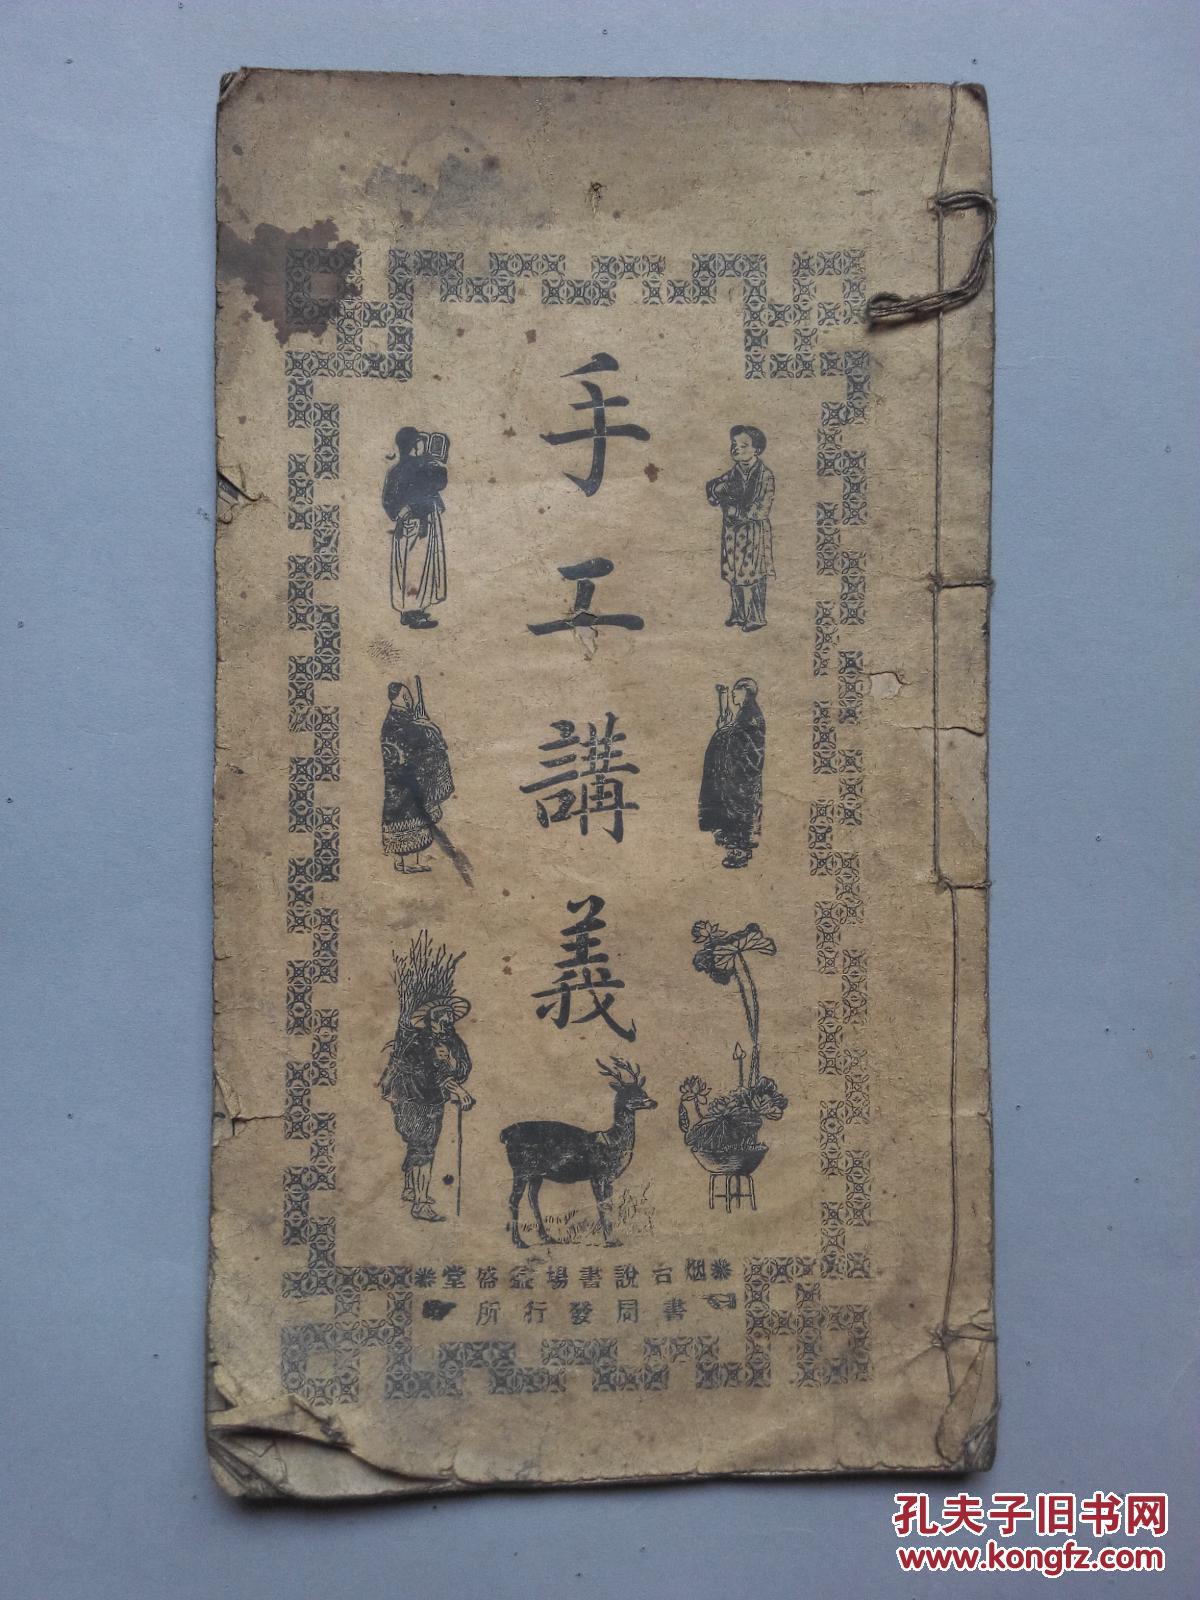 手工講義
烟台說書場益盛堂
書局發行所
孔夫子旧书网
www.kongfz.com